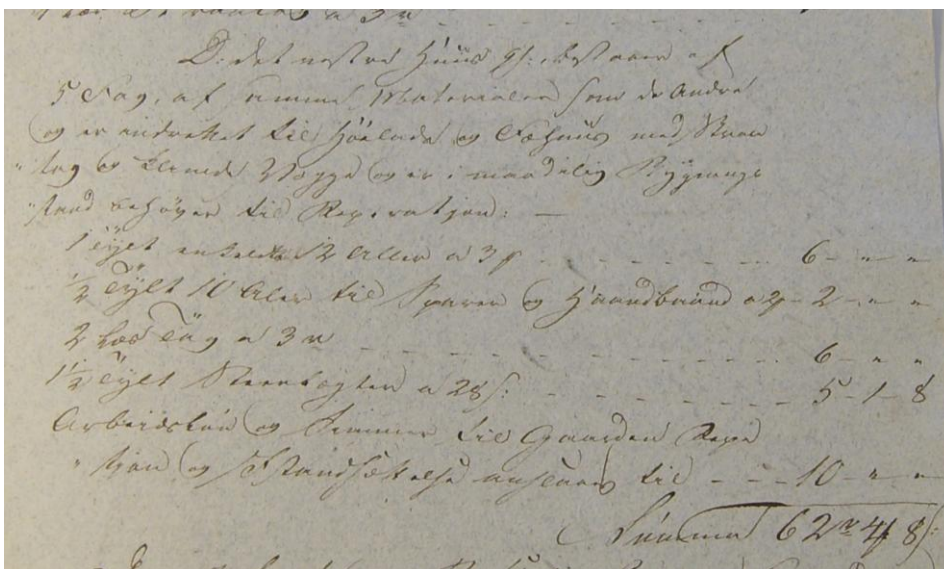 D: det vestre Huus [...] bestaaer af
5 Fag, af samme Materialer som de Andre
og er indrettet til Höelade og Fæhuus med Straae
"tag og kleinede Vægge og er i maadelig Bygnings
"stand behöver til Reperatjon: —
1 Tylt enkelte 12 Allen a 3 - - - 6 - " - "
½ Tylt 10 Alen til Sparer og Haandbaand a - 2 - " - "
2 Læs Tag a 3 - - - 6 - " - "
1½ Tylt Steenlægter a 28 s: - - - 5 - 1 - 8
Arbeidslön og Sömmer til Gaardens Repa
"tjon og Istandsættelse ansees til - - - 10 - " - "
Summa 62 4 8